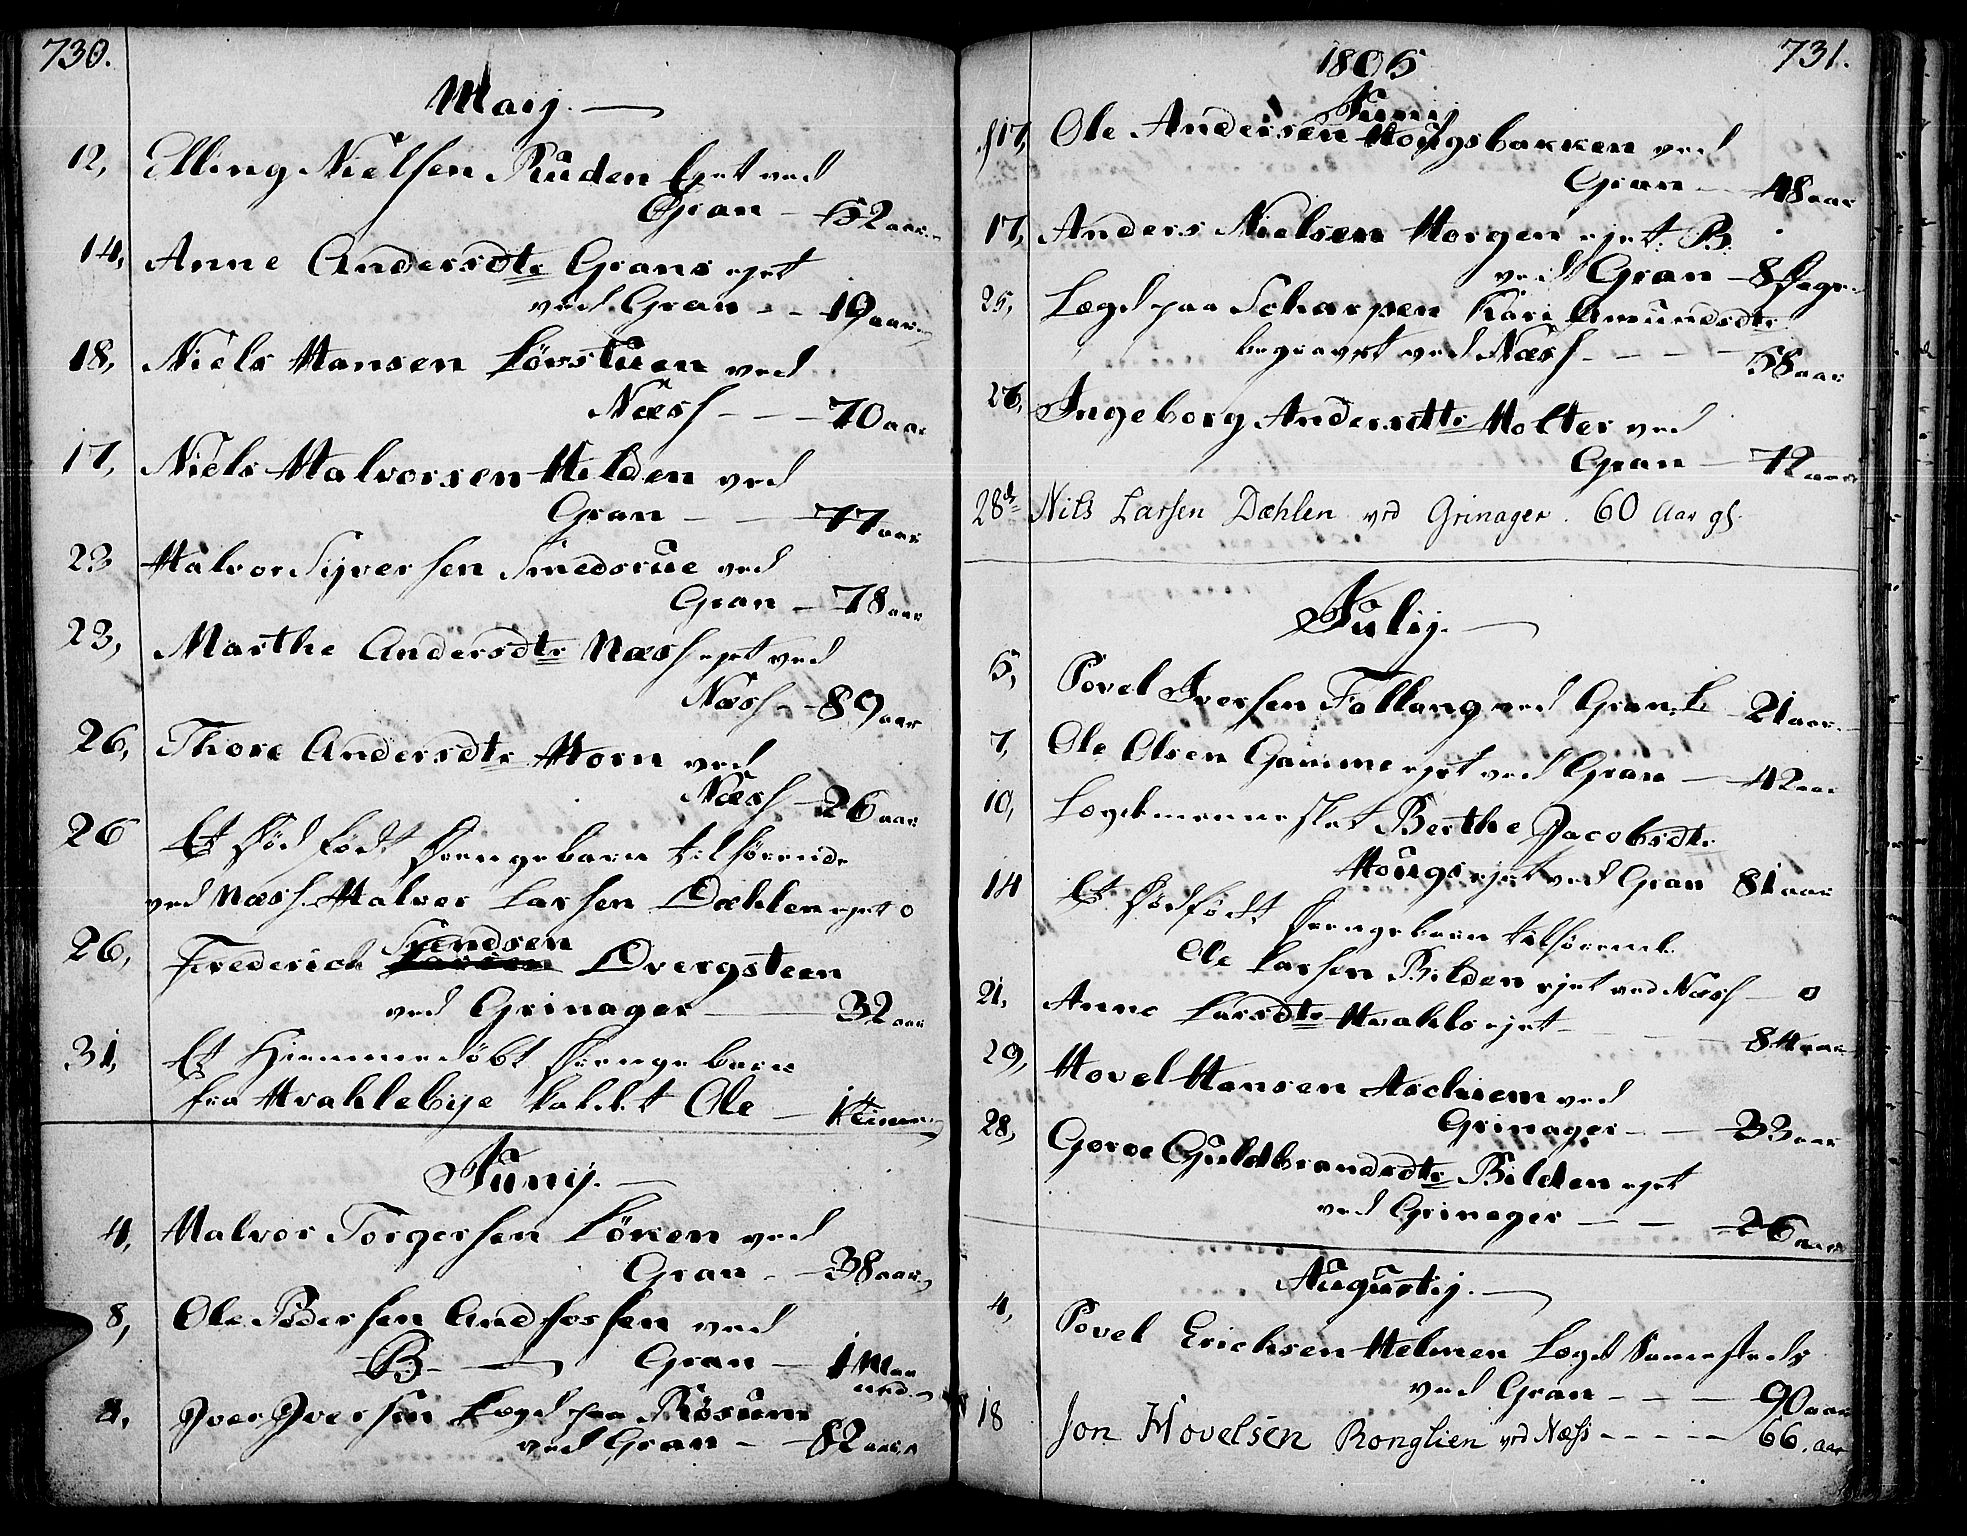 730.
Maij.
12, Elling Nielsen Ruden ejet ved
Gran - 52 aar
14, Anne Andersdtr Grans ejet
ved Gran - - 19 aar
18, Niels Hansen Lövstuen ved
Næss - - - 70 aar
17, Niels Halvorsen Hilden ved
Gran - - 77 aar
23 Halvor Syversen Smedsrue ved
Gran - 78 aar
23, Marthe Andersdtr Næss ejet ved
Næss - - 89 aar
26, Thore Andersdtr Horn ved
Næss - 26 aar
26 Et död födt Drengebarn tilhörende
ved Næss Halvor Larsen Dæhlen ejet 0
Svendsen
26, Frederich Dvergsteen
ved Grinager - 32 aar
31, Et Hiemmedöbt Drengebarn
fra Hvahlebye kaldet Ole - 1 Time
Junij.
4, Halvor Torgersen Löken ved
Gran - - 38 aar
8, Ole Pedersen Andfossen ved
B - Gran - 1 Maa
ned.
8, Iver Iversen Lægd paa Rösum
ved Gran - - 82 aar
731.
1805
Junij
17, Ole Andersen Hougsbakken ved
Gran - 48 aar
17, Anders Nielsen Horgen ejet B.
ved Gran - 8 Dage
25, Lægd paa Scharpen Kari Amundsdtr
begravet ved Næss - - - - 58 aar
26, Ingeborg Andersdtr Holter ved
Gran - 72 aar
28d Nils Larsen Dæhlen ved Grinager. 60 Aar gl.
Julij.
5, Povel Iversen Fallang ved Gran, L - 21 aar
7, Ole Olsen Gamme ejet ved Gran - 42 aar
10, Lægdemennesket Berthe Jacobsdtr
Hougs ejet ved Gran 81 aar
14 Et dödfödt Drengebarn tilhörende
Ole Larsen Bilden ejet ved Næss - 0
21, Anne Larsdtr Hvahls ejet - - - 84 aar
29, Hovel Hansen Aschiem ved
Grinager - - 33 aar
28, Goroe Guldbrandsdtr Bilden ejet
ved Grinager - - 26 aar
Augustij.
4, Povel Erichsen Helmen Lægd sammesteds
ved Gran - - - 90 aar
18 Jon Hovelsen Ronglien ved Næss - - - - - 66. aar